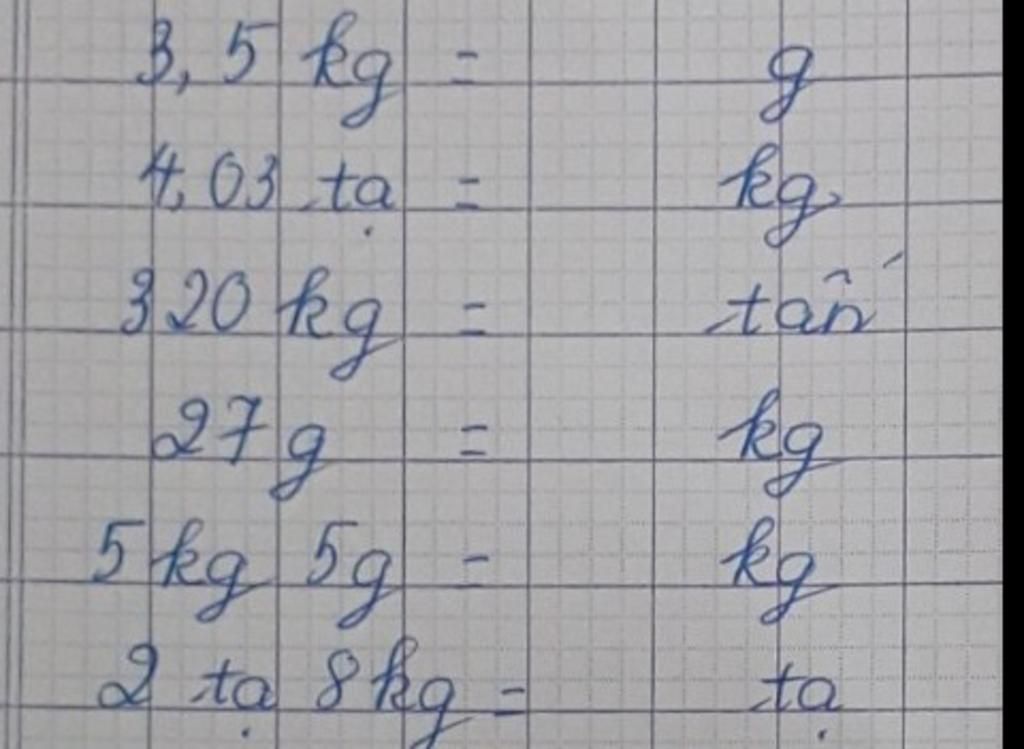 3,5 kg = g
4,03 tạ = kg
320 kg = tấn
27 g = kg
5 kg 5g = kg
2 tạ 8 kg = tạ